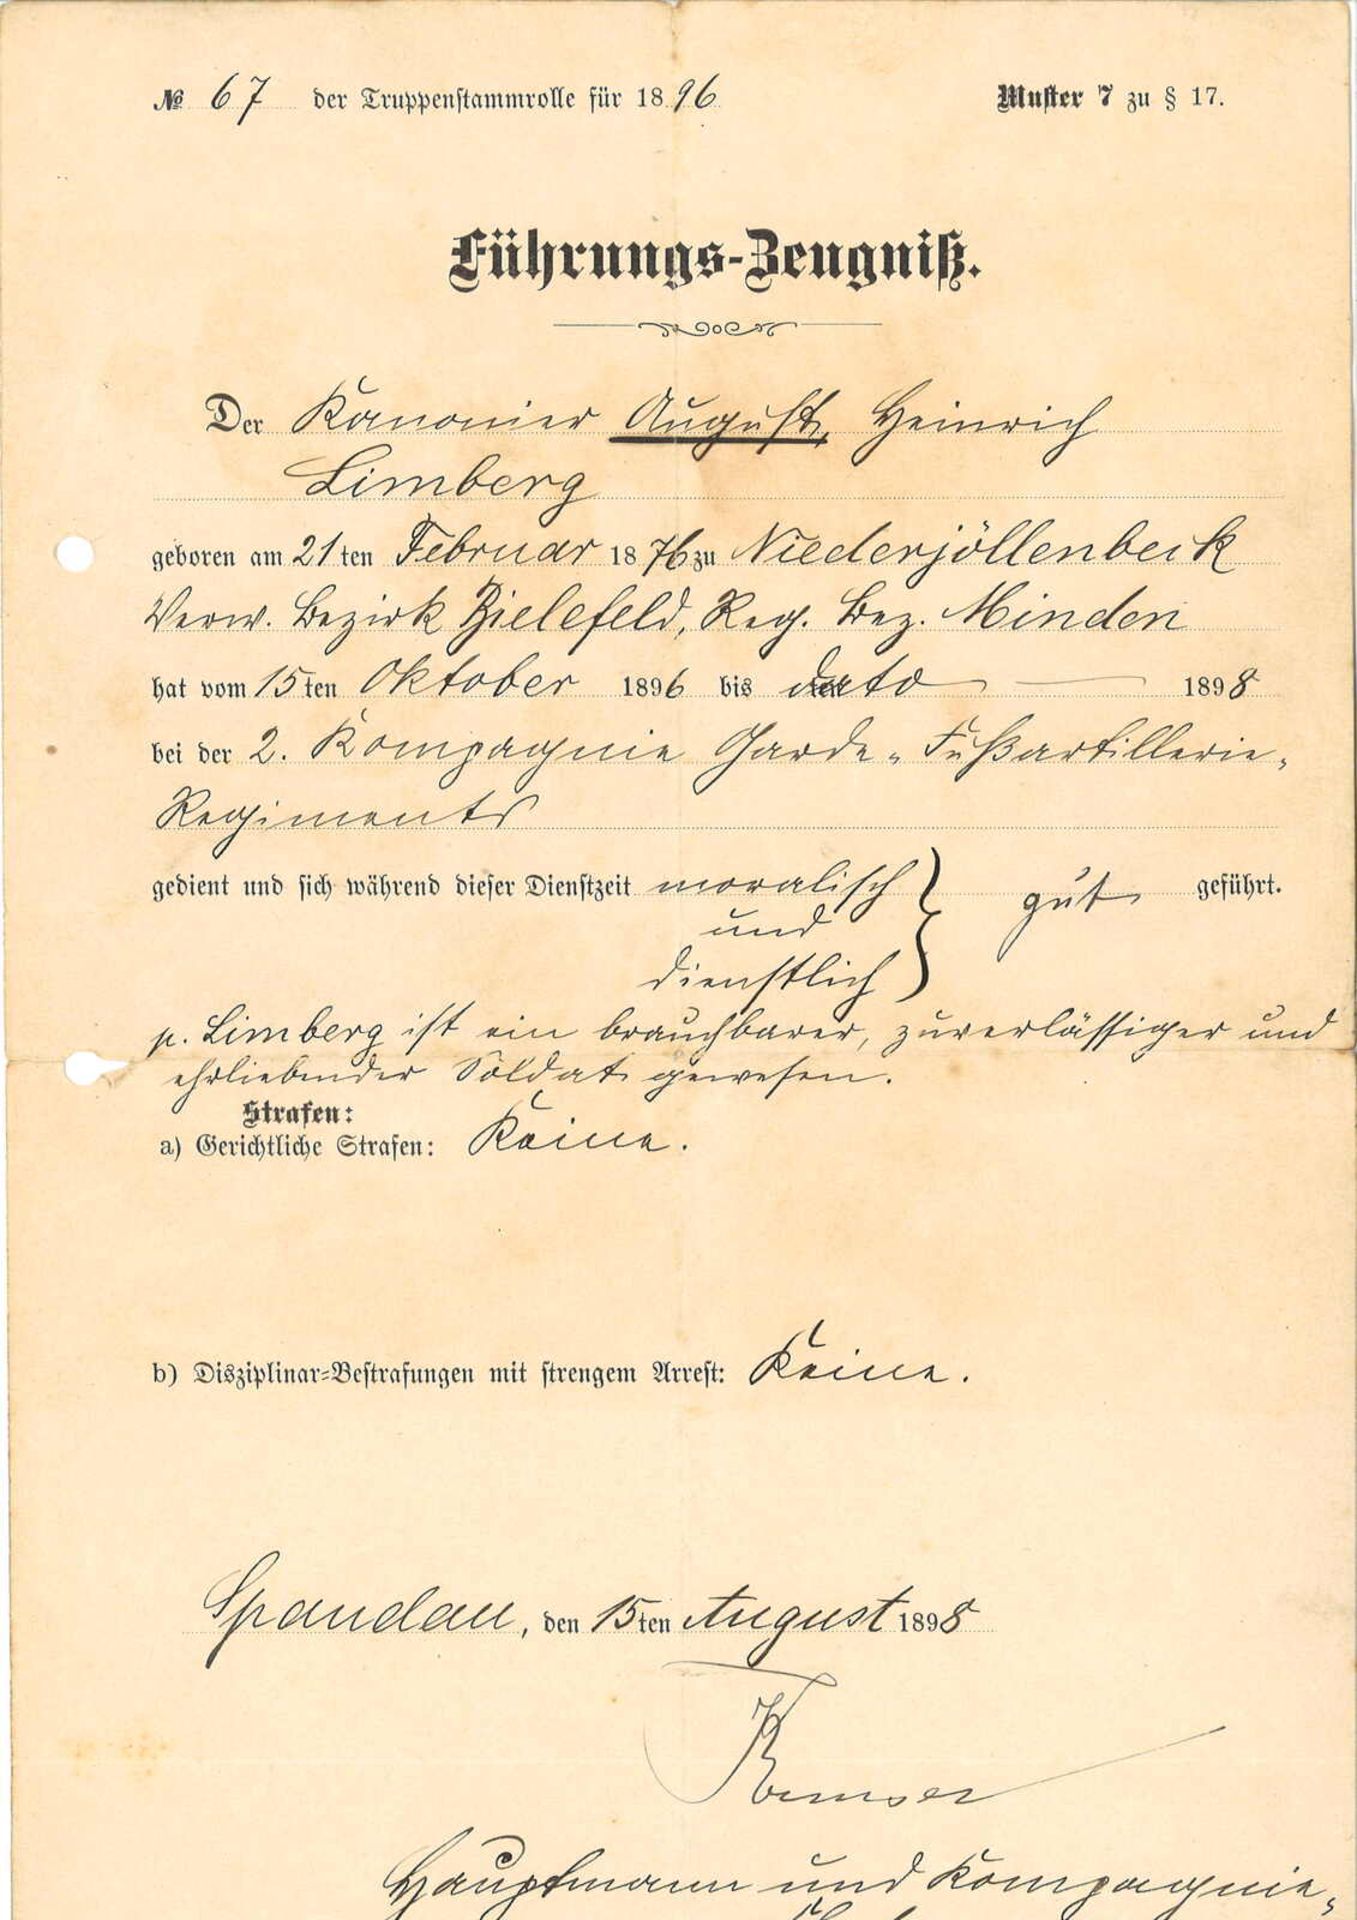 № 67 der Truppenstammrolle für 1896
Muster 7 zu § 17.
Führungs-Zeugniß.
Der Kanonier August, Heinrich
Limberg
geboren am 21ten Februar 1876 zu Niederjöllenbeck
Verw. Bezirk Bielefeld, Reg. Bez. Minden
hat vom 15ten Oktober 1896 bis dato 1898
bei der 2. Kompagnie Garde-Fußartillerie-
Regiments
gedient und sich während dieser Dienstzeit moralisch gut geführt.
und
dienstlich
p. Limberg ist ein brauchbarer, zuverlässiger und
ehrliebender Soldat gewesen.
Strafen:
a) Gerichtliche Strafen: Keine.
b) Disziplinar-Bestrafungen mit strengem Arrest: Keine.
Spandau, den 15ten August 1898
Hauptmann und Kompagnie-